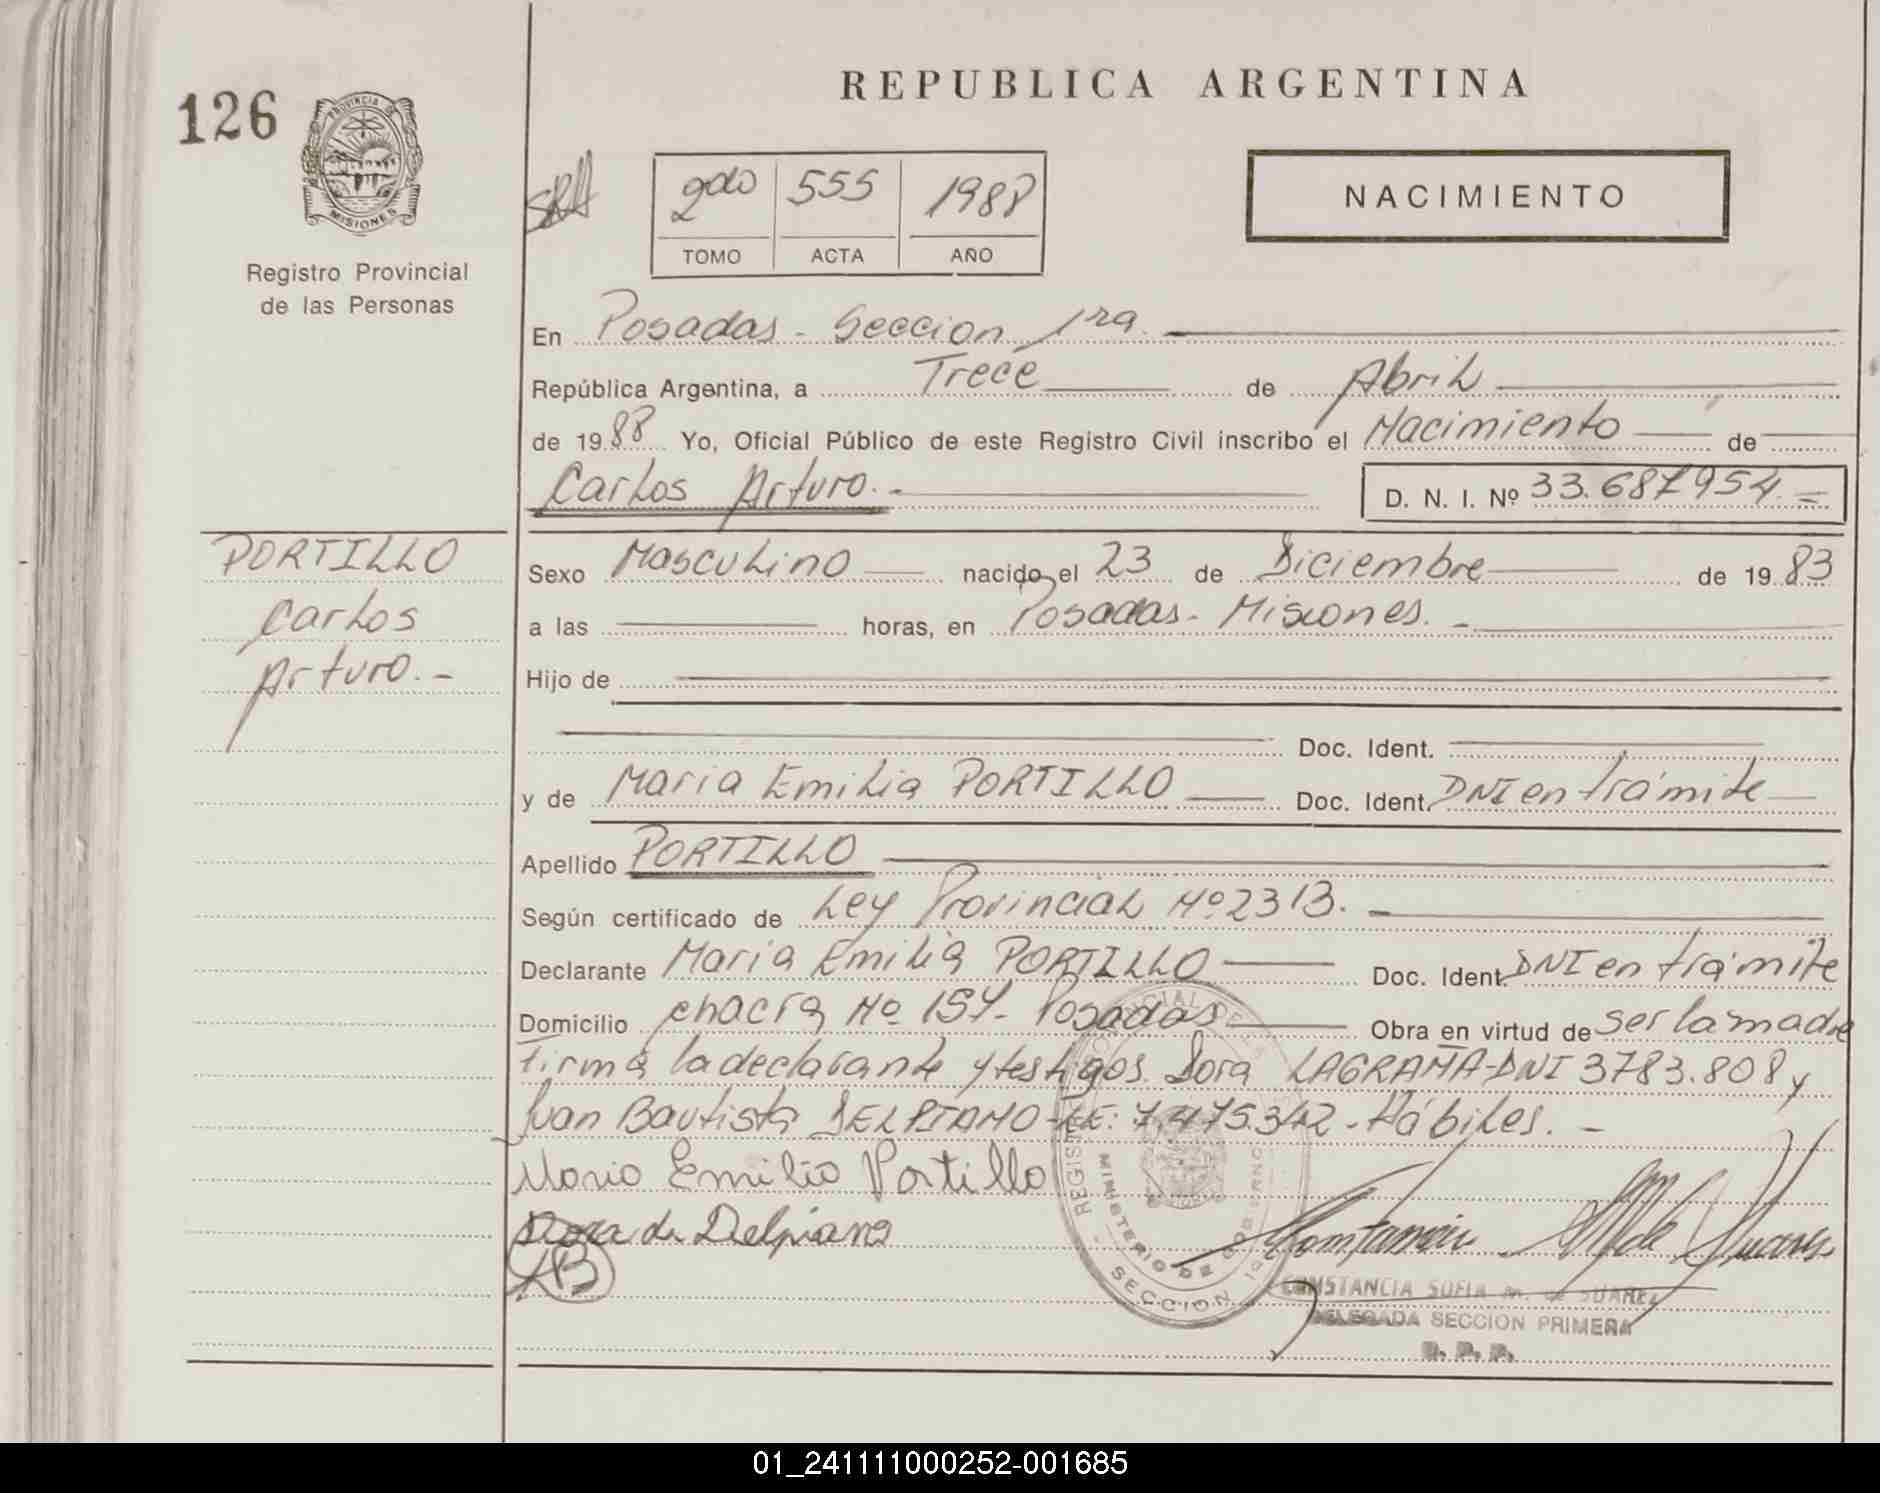 126
PROVINCIA DE
MISIONES
Registro Provincial
de las Personas
REPUBLICA ARGENTINA
2do 555 1988
TOMO ACTA AÑO
NACIMIENTO
En Posadas - Seccion 1ra.
República Argentina, a Trece de Abril
de 1988 Yo, Oficial Público de este Registro Civil inscribo el Nacimiento de
Carlos Arturo.- D. N. I. Nº 33.687954.=
PORTILLO
Carlos
Arturo.-
Sexo Masculino nacido el 23 de Diciembre de 1983
a las horas, en Posadas - Misiones.-
Hijo de
Doc. Ident.
y de Maria Emilia PORTILLO Doc. Ident. DNI en trámite
Apellido PORTILLO
Según certificado de Ley Provincial Nº 2313.-
Declarante Maria Emilia PORTILLO Doc. Ident. DNI en trámite
Domicilio chacra Nº 154- Posadas Obra en virtud de ser la madre
Firma la declarante y testigos Dora LAGRAÑA-DNI 3783.808 y
Juan Bautista DELPIANO-LE: 7.475.342 - Hábiles.-
Maria Emilia Portillo
Dora de Delpiano
MINISTERIO DE GOBIERNO
SECCION 1
CONSTANCIA SOFIA M. de SUAREZ
DELEGADA SECCION PRIMERA
R. P. P.
01_241111000252-001685